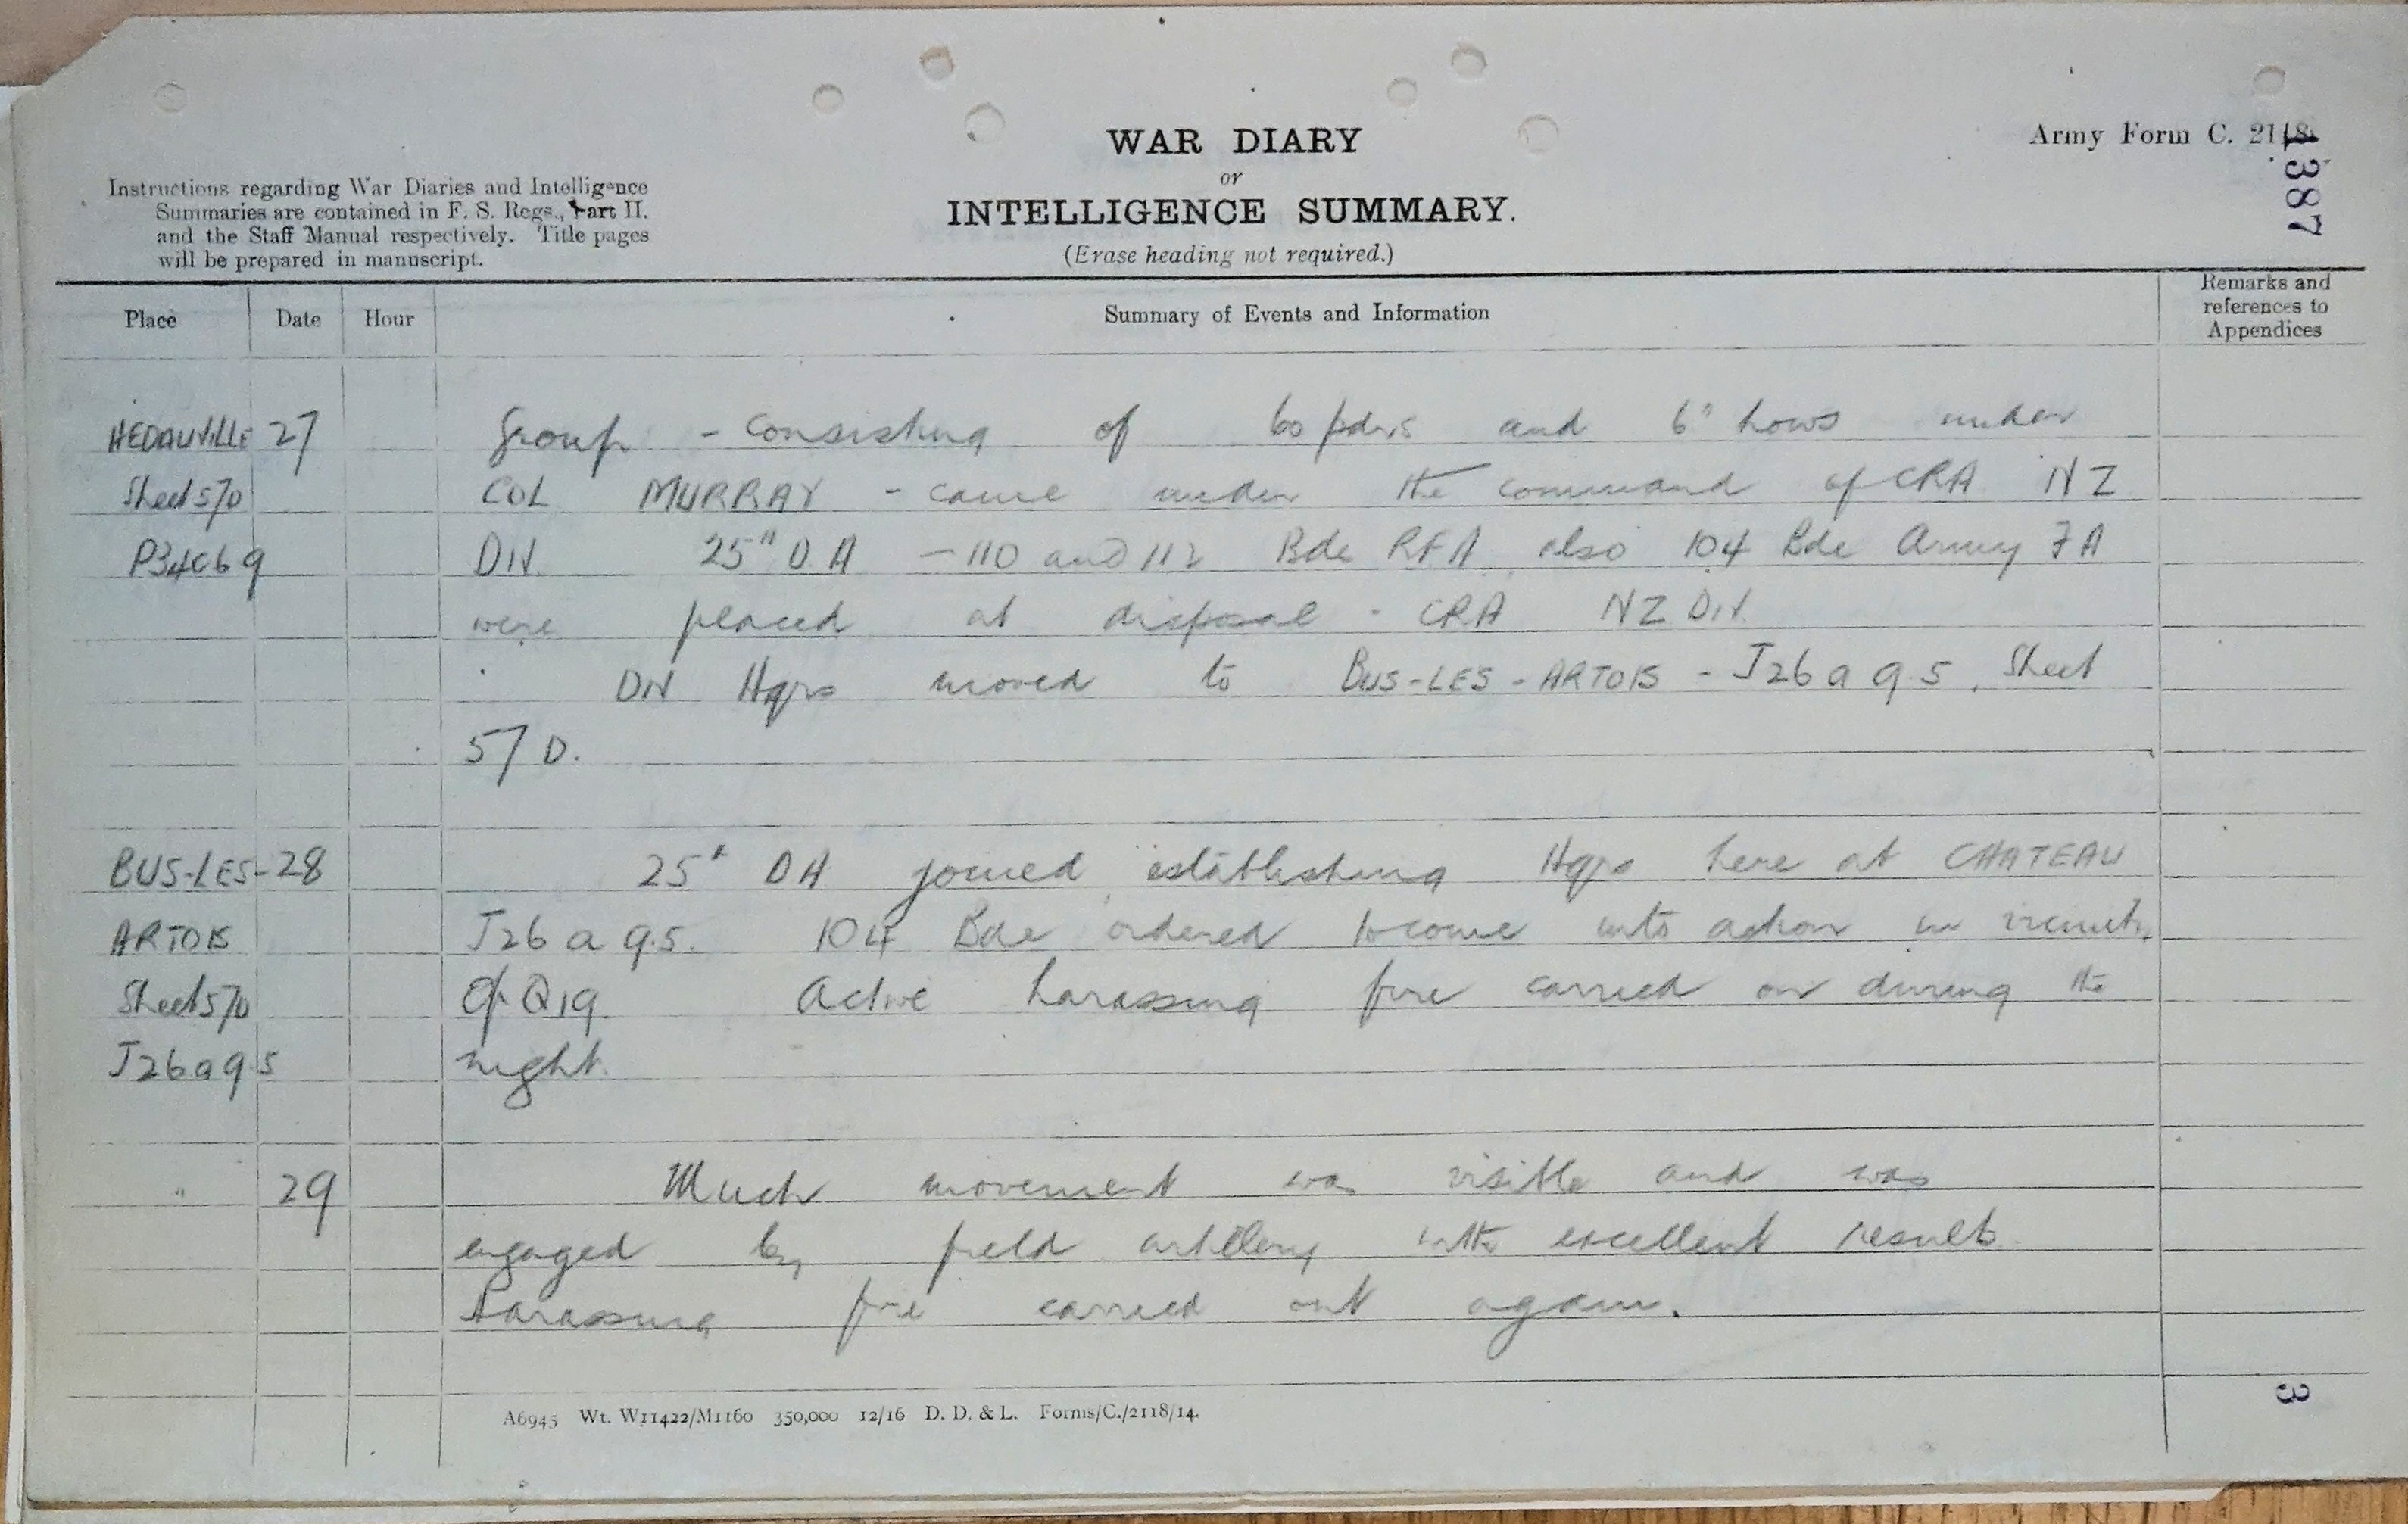 Army Form C. 2118.
1387
WAR DIARY
or
INTELLIGENCE SUMMARY.
(Erase heading not required.)
Instructions regarding War Diaries and Intelligence
Summaries are contained in F. S. Regs., Part II.
and the Staff Manual respectively. Title pages
will be prepared in manuscript.
Place Date Hour Summary of Events and Information Remarks and references to Appendices
HEDAUVILLE 27 Group - consisting of 60 pdrs and 6" hows under
Sheet 57D COL MURRAY - came under the command of CRA NZ
P34c69 DIV. 25" DA - 110 and 112 Bde RFA also 104 Bde Army FA
were placed at disposal - CRA NZ DIV.
DIV Hqrs moved to BUS-LES-ARTOIS - J26 a 9.5. Sheet
57 D.
BUS-LES- 28 25th DA joined, establishing Hqrs here at CHATEAU
ARTOIS J26 a 9.5. 104 Bde ordered to come into action in vicinity
Sheet 57D of Q19. Active harassing fire carried on during the
J26a9.5 night.
" 29 Much movement was visible and was
engaged by field artillery with excellent results
Harassing fire carried out again.
A6945 Wt. W11422/M1160 350,000 12/16 D. D. & L. Forms/C./2118/14.
3